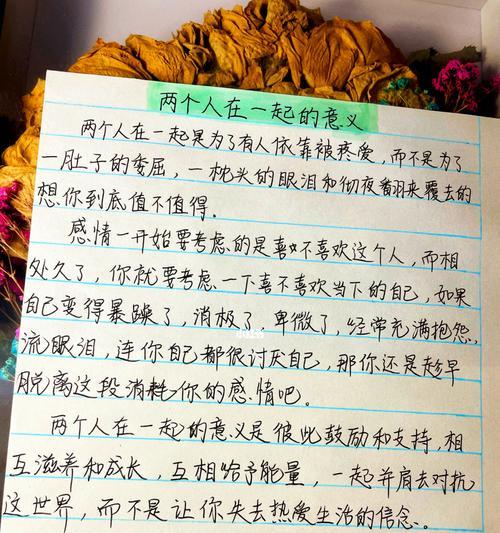 两个人在一起的意义
两个人在一起是为了有人依靠被疼爱，而不是为了
一肚子的委屈，一枕头的眼泪和彻夜翻来覆去的
想你到底值不值得。
感情一开始要考虑的是喜不喜欢这个人，而相
处久了，你就要考虑一下喜不喜欢当下的自己，如果
自己变得暴躁了，消极了，卑微了，经常充满抱怨，
流眼泪，连你自己都很讨厌自己，那你还是趁早
脱离这段消耗你的感情吧。
两个人在一起的意义是彼此鼓励和支持，相
互滋养和成长，互相给予能量，一起并肩去对抗
这世界，而不是让你失去热爱生活的信念。